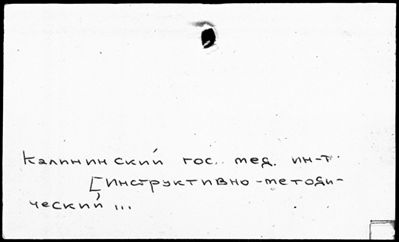 Калининский гос. мед. ин-т.
[Инструктивно-методи-
ческий ...